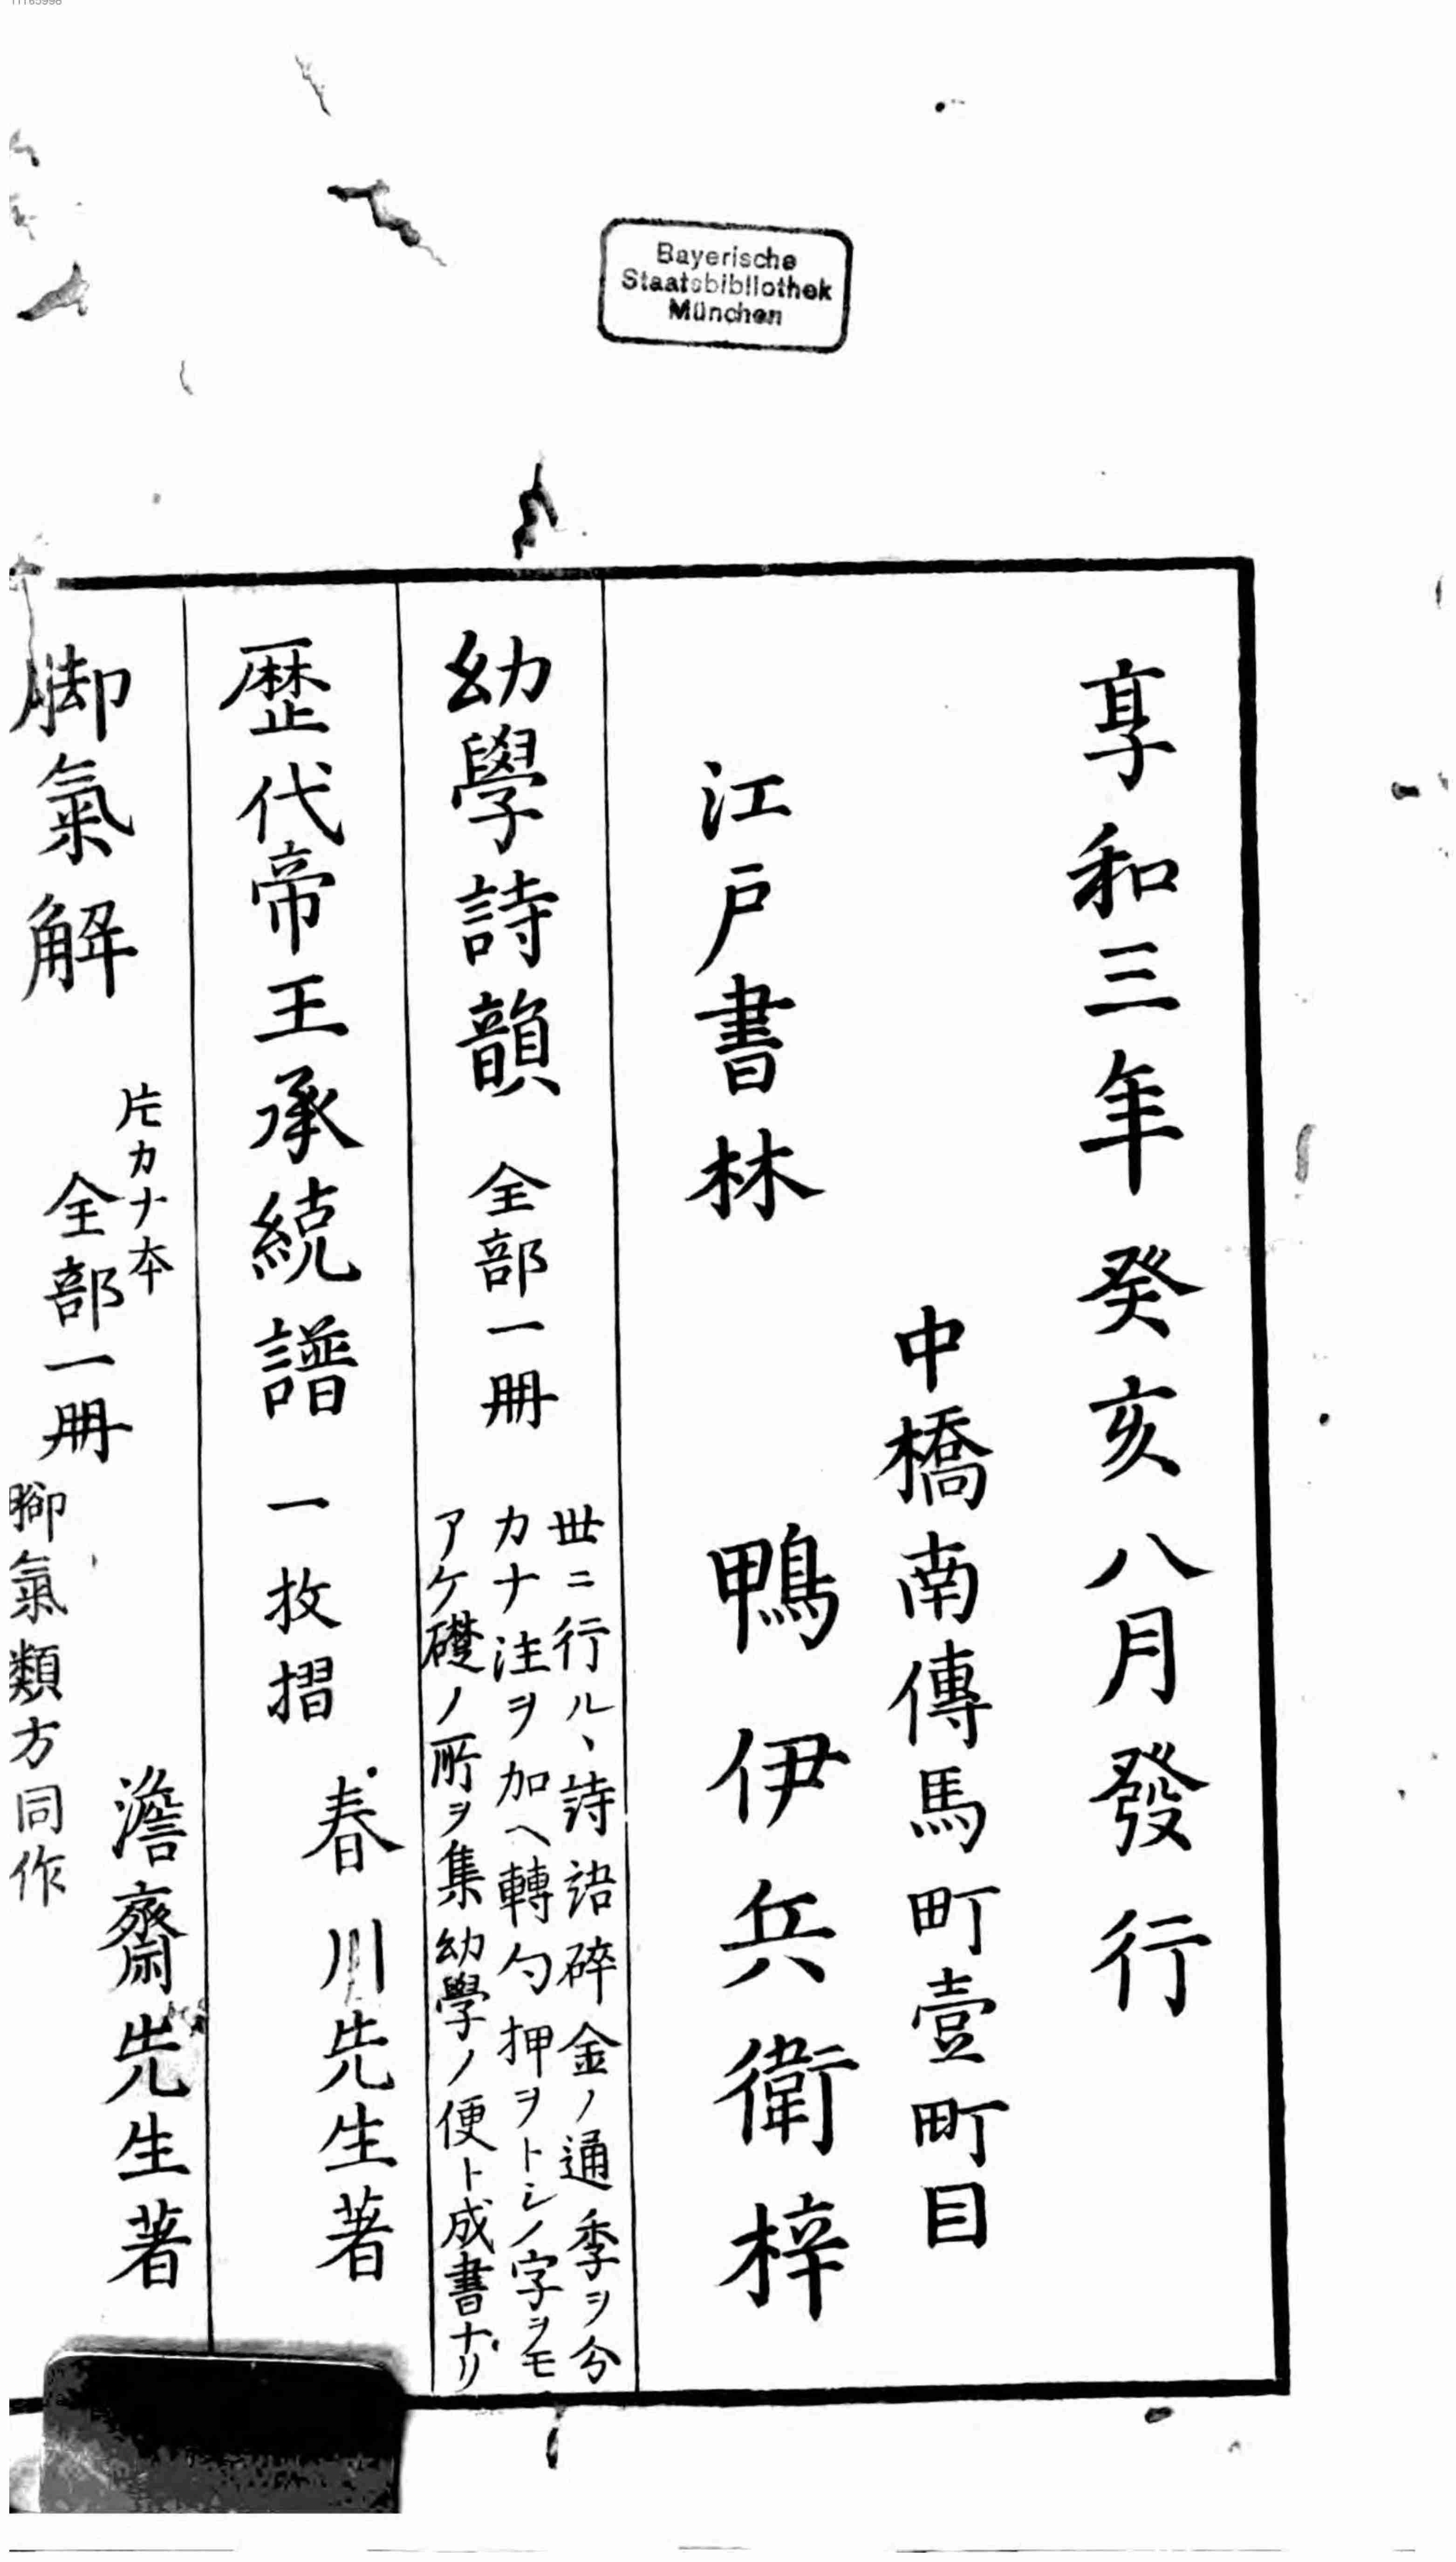 Bayerische
Staatsbibliothek
München
享和三年癸亥八月發行
中橋南傳馬町壹町目
江戸書林
鴨伊兵衛梓
幼學詩韻 全部一冊
世ニ行ルヽ詩語碎金ノ通季ヲ分
カナ注ヲ加ヘ轉勺押ヲトシノ字ヲモ
アケ礎ノ所ヲ集幼學ノ便ト成書ナリ
歷代帝王承統譜 一枚摺
春川先生著
脚氣解
片カナ本
全部一冊
脚氣類方同作
澹齋先生著